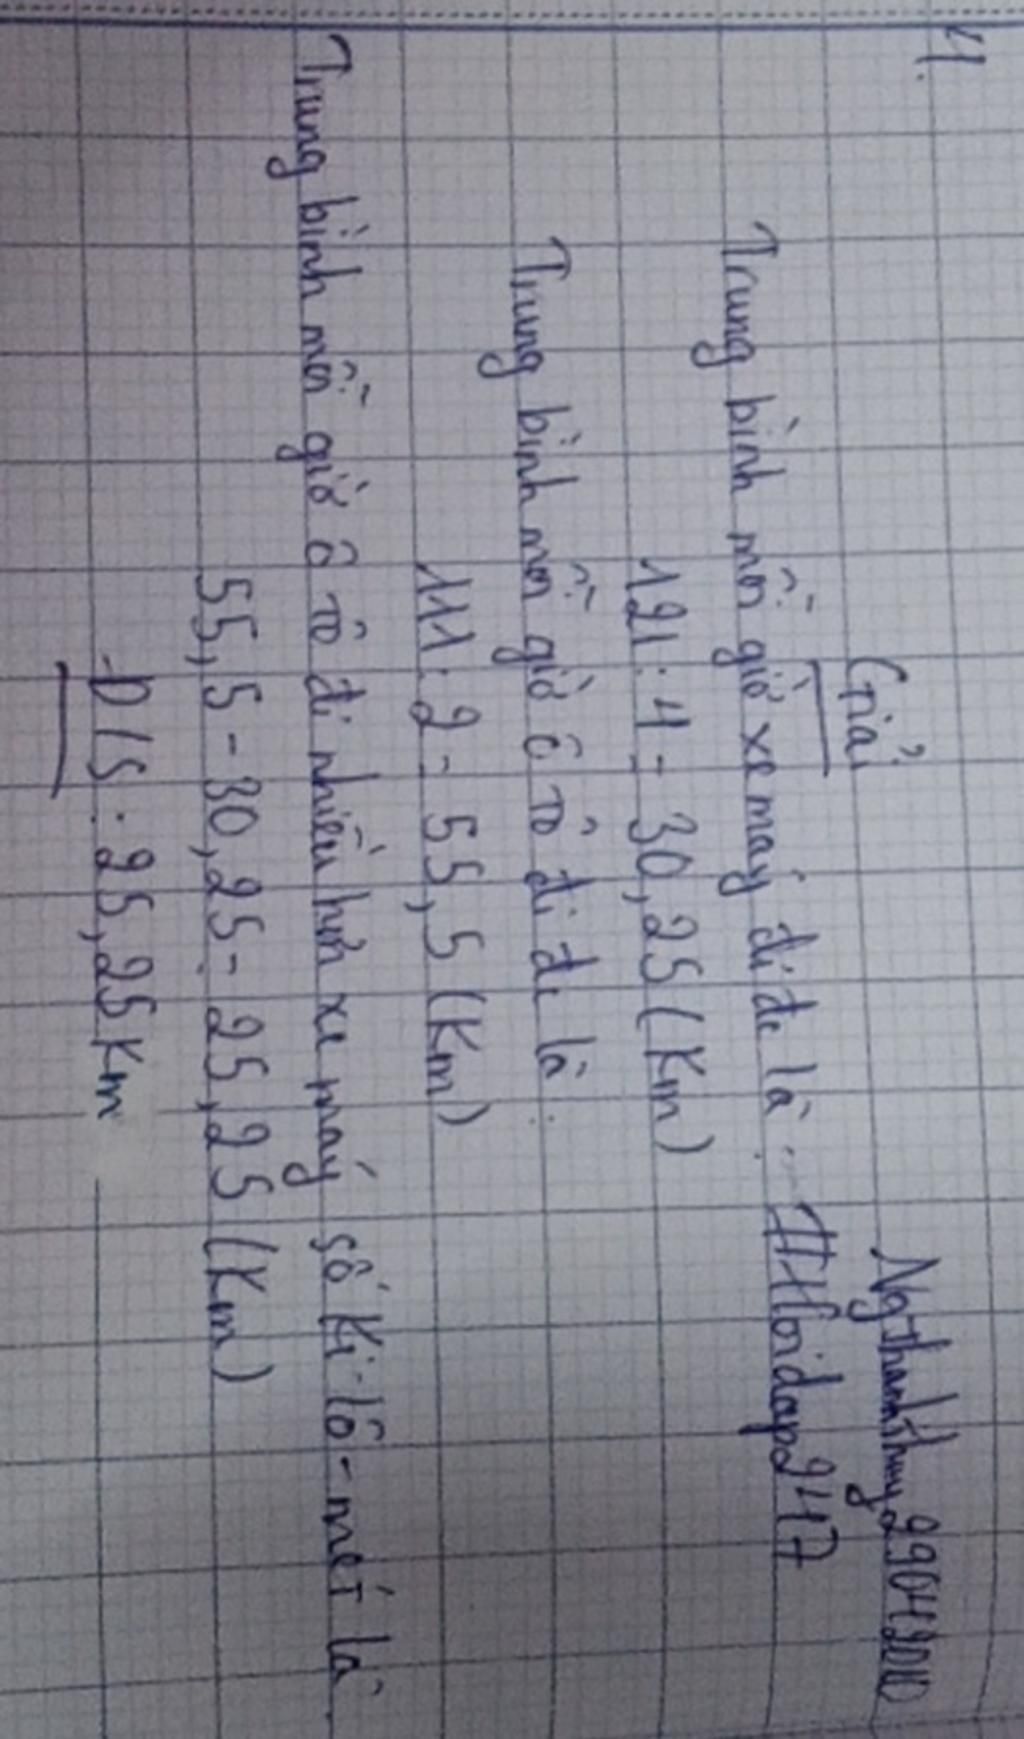 4.
Giải
Ngthanhthuy29042010
Trung bình mỗi giờ xe máy đi đc là: #Hoidap247
121 : 4 = 30,25 (Km)
Trung bình mỗi giờ ô tô đi đc là:
111 : 2 = 55,5 (Km)
Trung bình mỗi giờ ô tô đi nhiều hơn xe máy số Ki-lô-mét là
55,5 - 30,25 = 25,25 (Km)
Đ/S : 25,25 Km